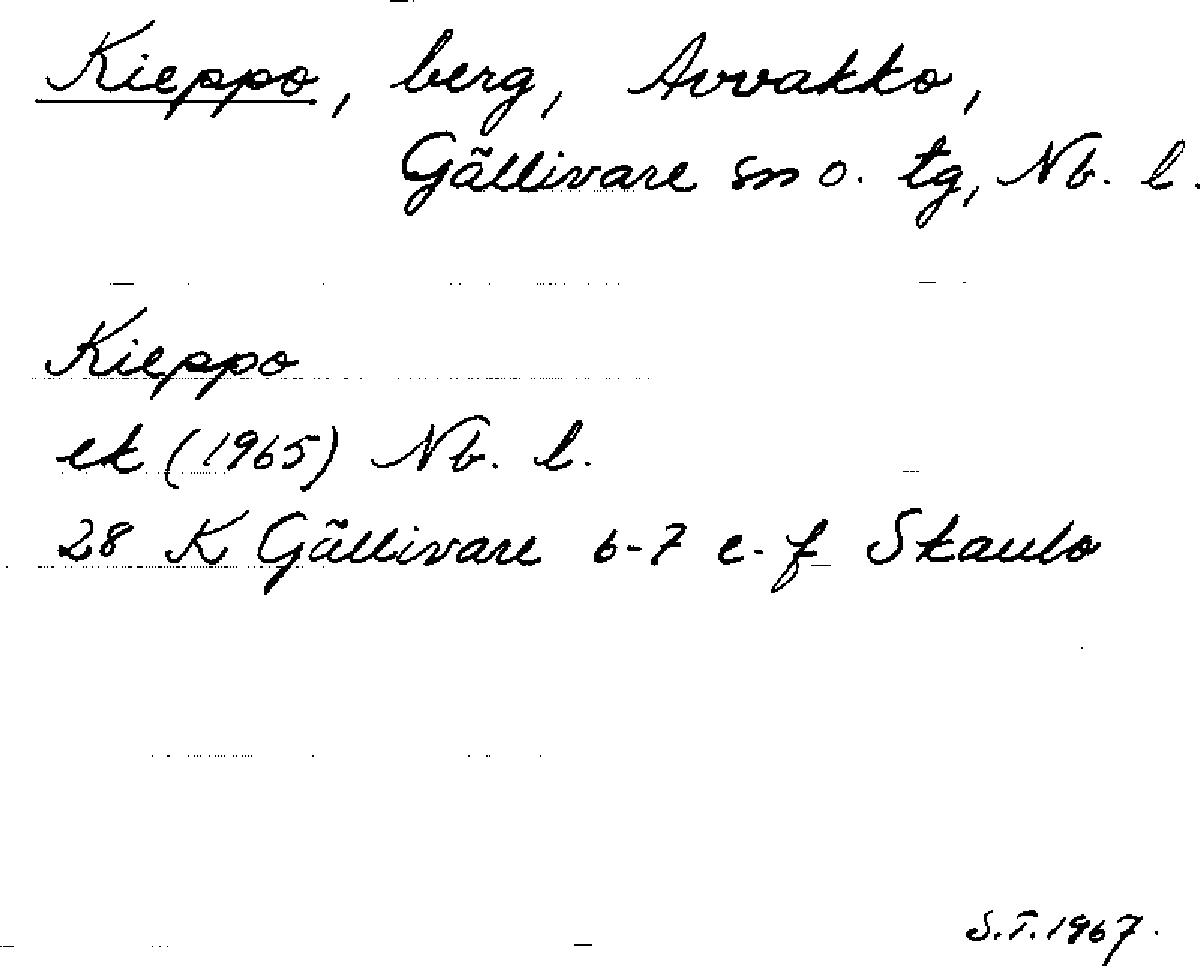 Kieppo, berg, Avvakko,
Gällivare sn o. tg, Nb. l.
Kieppo
ek (1965) Nb. l.
28 K Gällivare 6-7 e-f Skaulo
S.T. 1967.